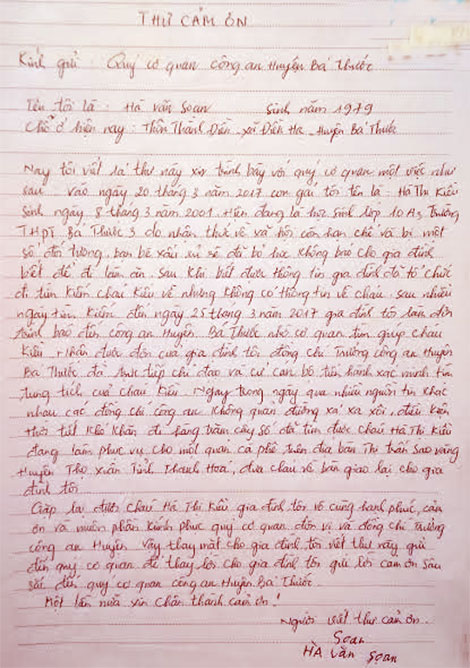 THƯ CẢM ƠN
Kính gửi: Quý cơ quan công an Huyện Bá Thước
Tên tôi là: Hà Văn Soan Sinh năm 1979
Chỗ ở hiện nay: Thôn Thành Điền - xã Điền Hạ - Huyện Bá Thước
Nay tôi viết lá thư này xin trình bày với quý cơ quan một việc như
sau: Vào ngày 20 tháng 3 năm 2017 con gái tôi tên là: Hà Thị Kiều
Sinh ngày 8 tháng 3 năm 2001. Hiện đang là học sinh lớp 10 A3, Trường
THPT Bá Thước 3 do nhận thức về xã hội còn hạn chế và bị một
số đối tượng, bạn bè xấu rủ rê đã bỏ học không báo cho gia đình
biết để đi làm ăn. Sau khi biết được thông tin gia đình đã tổ chức
đi tìm kiếm cháu Kiều về nhưng không có thông tin về cháu. Sau nhiều
ngày tìm kiếm đến ngày 25 tháng 3 năm 2017 gia đình tôi làm đơn
trình báo đến công an Huyện Bá Thước nhờ cơ quan tìm giúp cháu
Kiều. Nhận được đơn của gia đình tôi, đồng chí Trưởng công an Huyện
Bá Thước đã trực tiếp chỉ đạo và cử cán bộ tiến hành xác minh tìm
tung tích của cháu Kiều. Ngay trong ngày qua nhiều nguồn tin khác
nhau các đồng chí công an không quản đường xá xa xôi, điều kiện
thời tiết khó khăn đi hàng trăm cây số đã tìm được cháu Hà Thị Kiều
đang làm phục vụ cho một quán cà phê trên địa bàn Thị trấn Sao vàng
Huyện Thọ Xuân Tỉnh Thanh Hoá, đưa cháu về bàn giao lại cho gia
đình tôi
Gặp lại được cháu Hà Thị Kiều gia đình tôi vô cùng hạnh phúc, cảm
ơn và muôn phần kính phục quý cơ quan đơn vị và đồng chí Trưởng
công an Huyện. Vậy thay mặt cho gia đình tôi viết thư này gửi
đến quý cơ quan để thay lời cho gia đình tôi gửi lời cảm ơn sâu
sắc đến quý cơ quan công an Huyện Bá Thước.
Một lần nữa xin chân thành cảm ơn!
Người viết thư cảm ơn.
Soan
HÀ Văn Soan